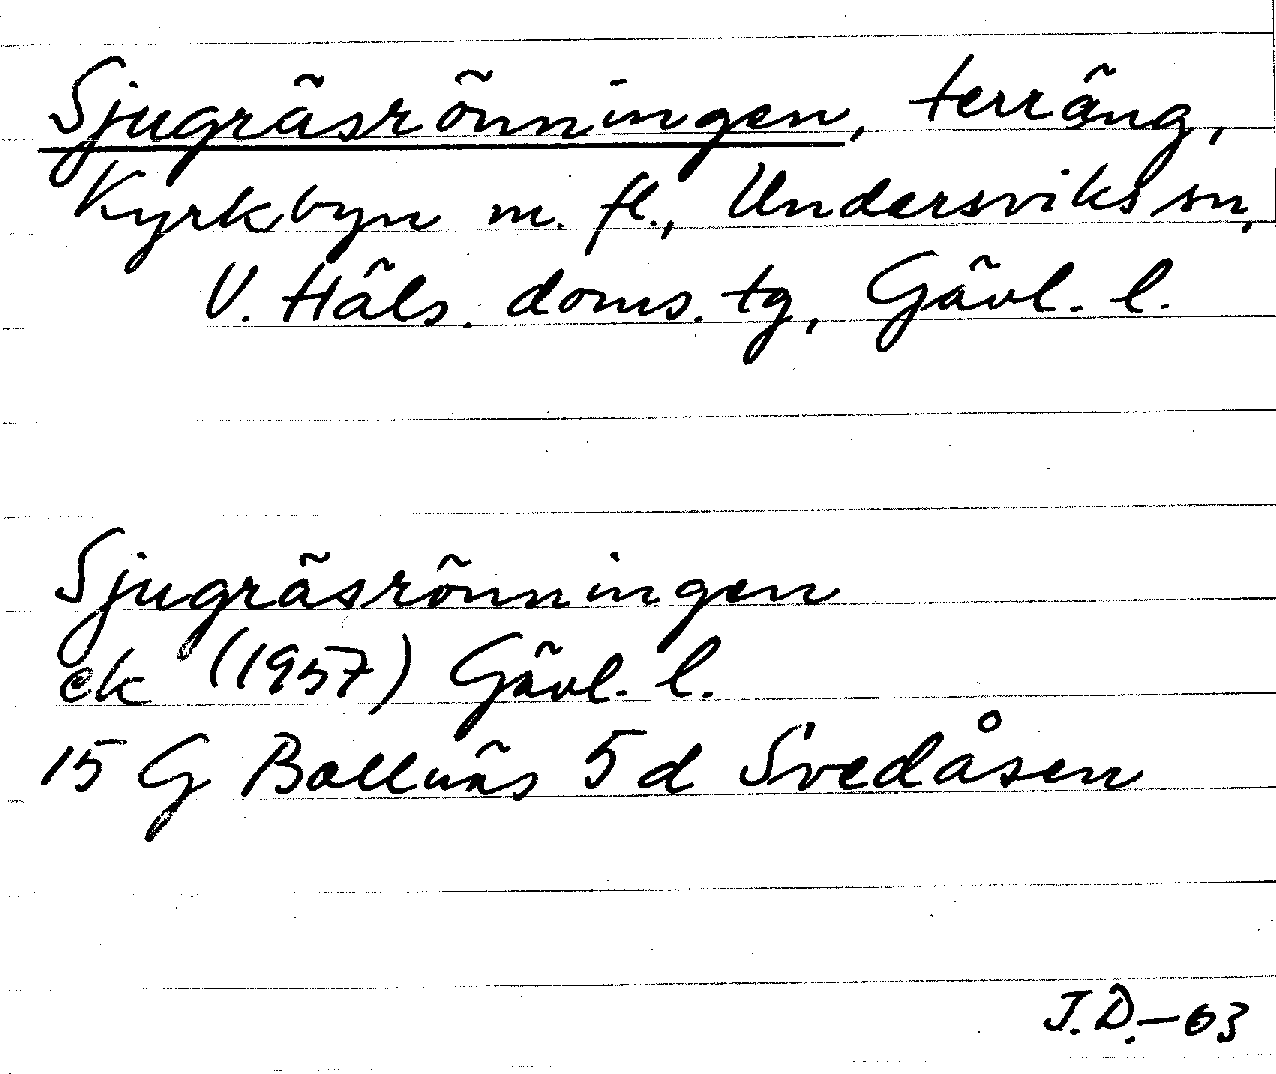 Sjugräsrönningen, terräng,
Kyrkbyn m. fl., Undersviks sn,
V. Häls. doms. tg, Gävl. l.
Sjugräsrönningen
ek (1957) Gävl. l.
15 G Bollnäs 5 d Svedåsen
J.D.–63